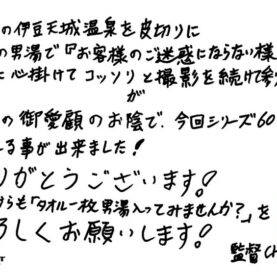 の伊豆天城温泉を皮切りに
の男湯で『お客様のご迷惑にならない様
に心掛けてコッソリと撮影を続け
が
の御愛顧のお陰で、今回シリーズ60
る事が出来ました!
りがとうございます!
からも「タオル一枚男湯入ってみませんか?」を
ろしくお願いします!
監督